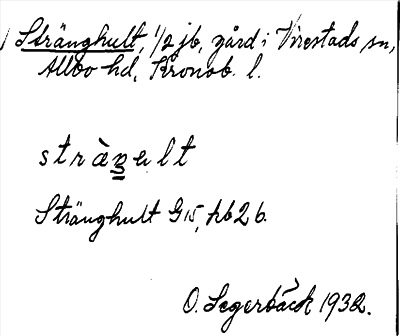 Stränghult, 1/2 jb, gård i Virestads sn,
Allbo hd, Kronob. l.
stràŋult
Stränghult G15, hb 2 b.
O. Segerbäck 1932.